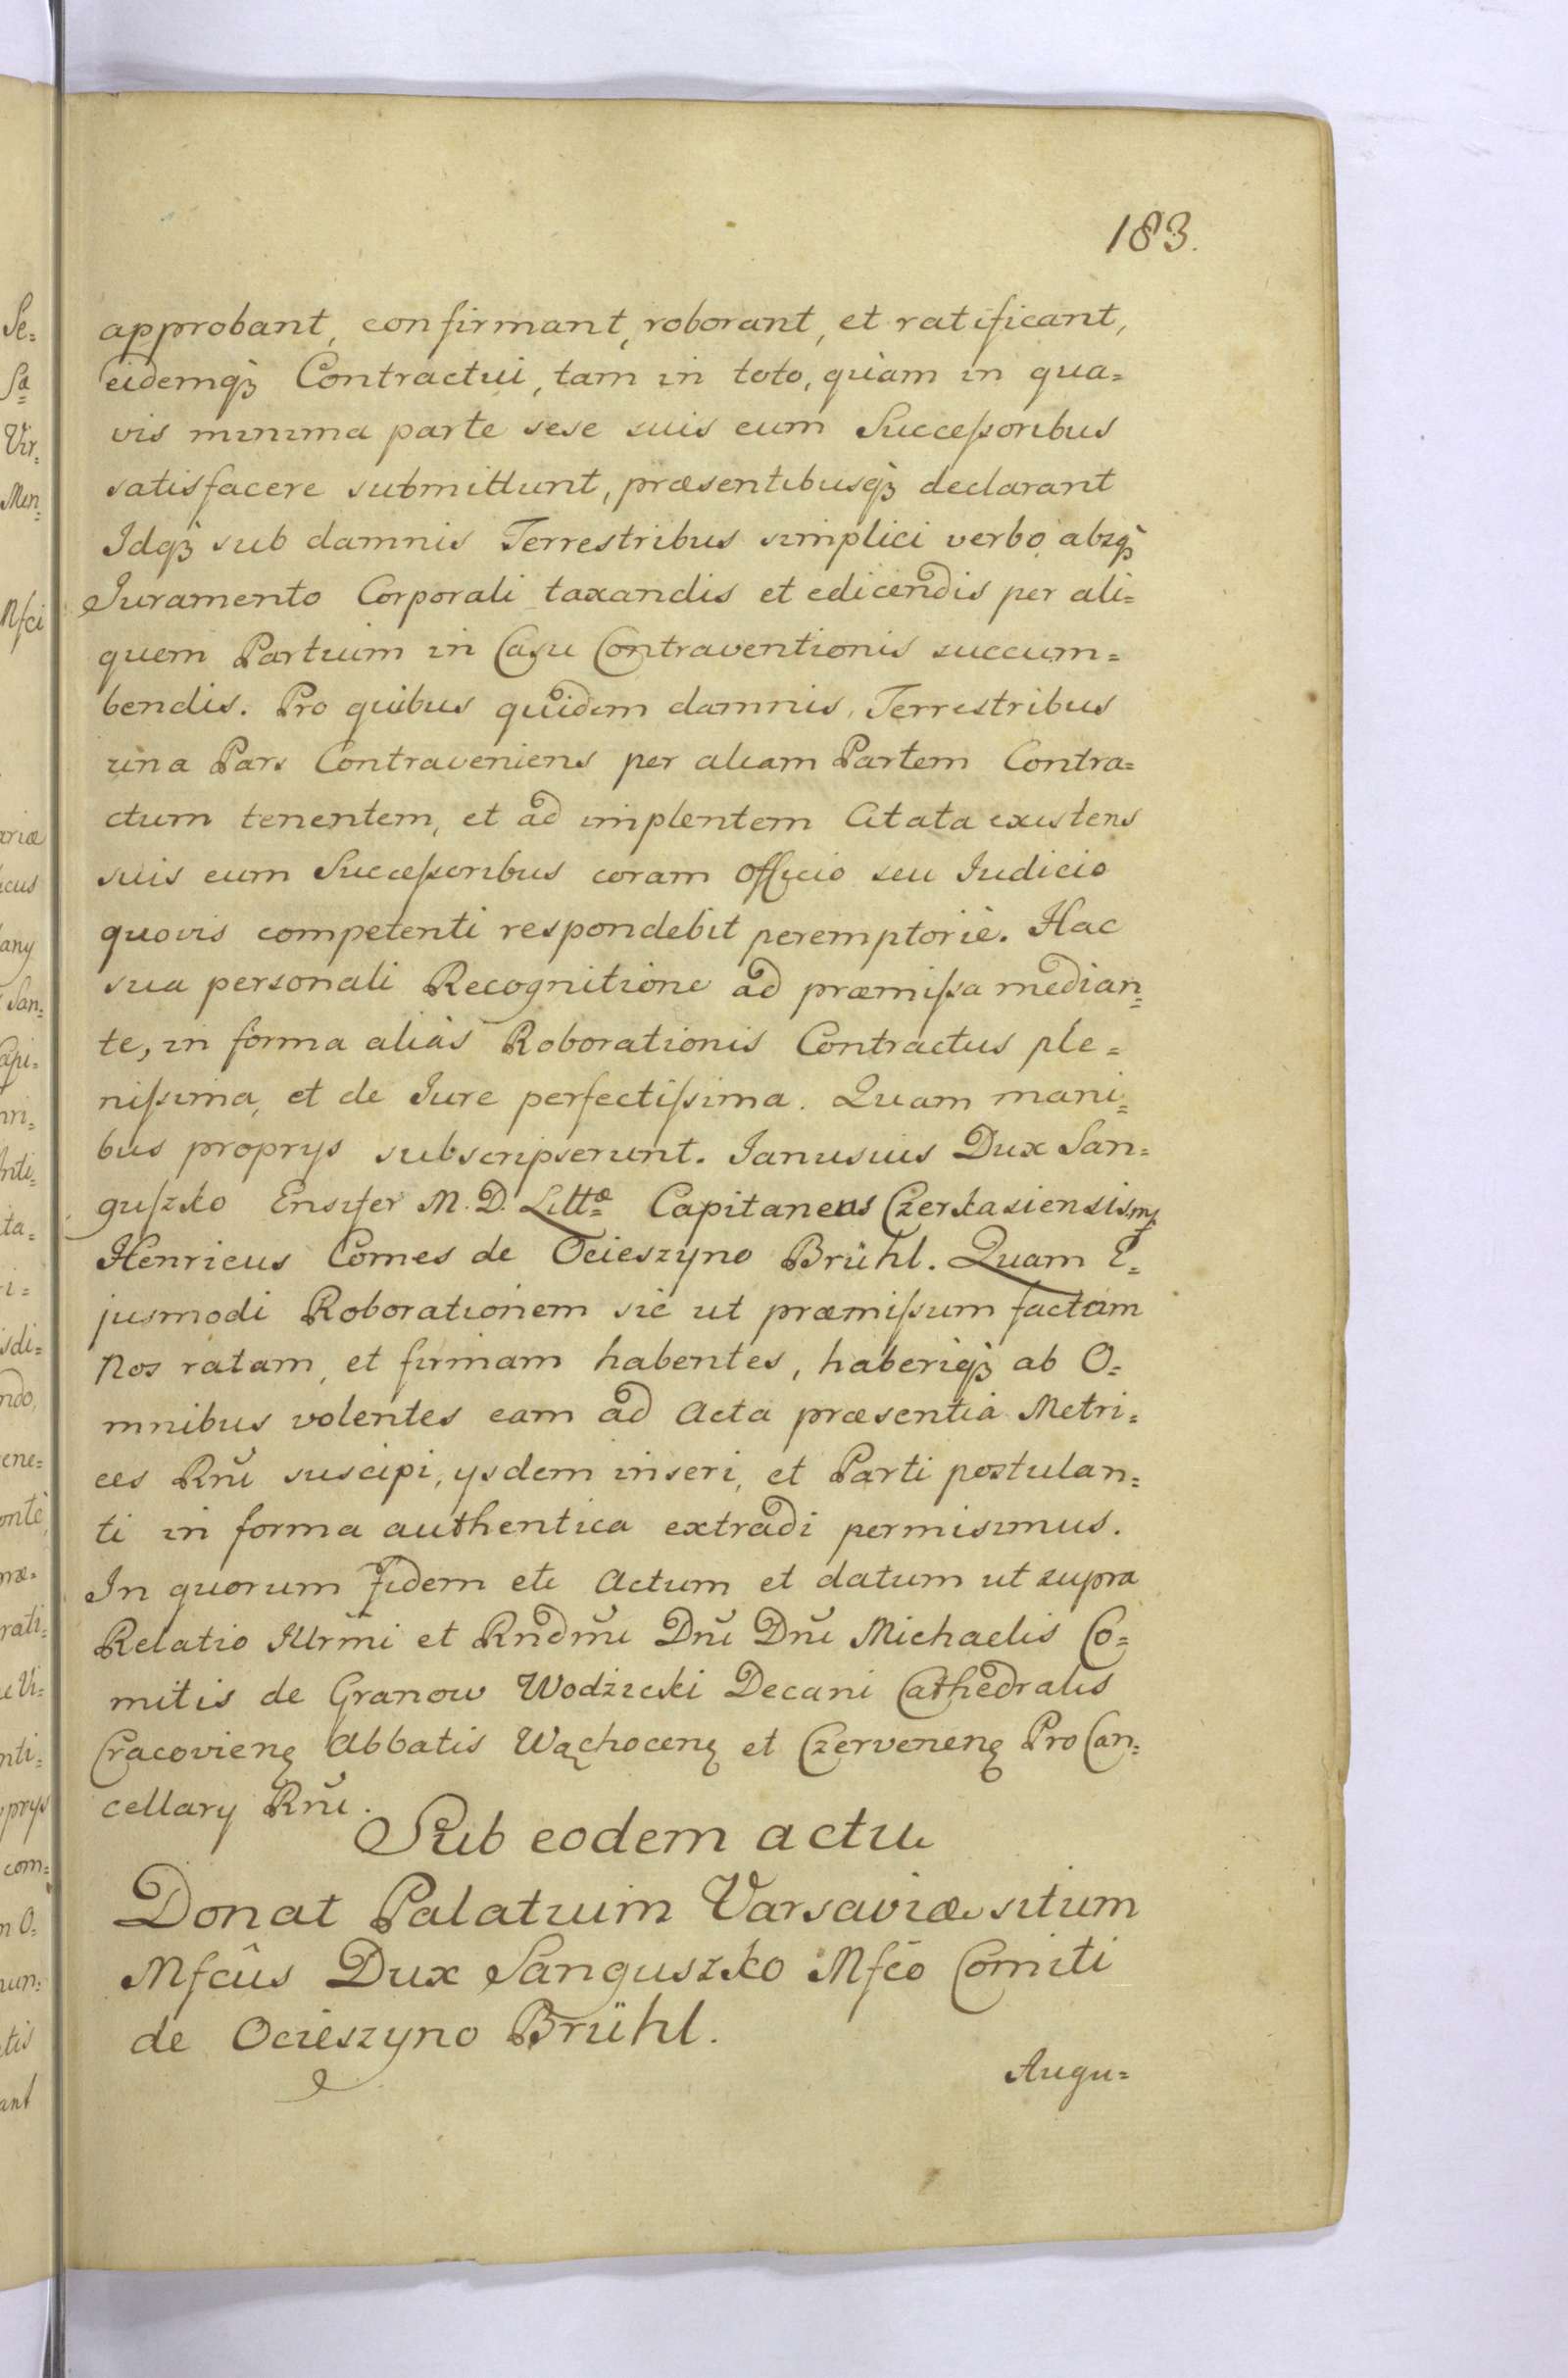 183.
approbant, confirmant, roborant, et ratificant,
eidemqꝫ Contractui, tam in toto, quàm in qua=
vis minima parte sese suis cum Successoribus
satisfacere submittunt, præsentibusqꝫ declarant
Idqꝫ sub damnis Terrestribus simplici verbo absqꝫ
Juramento Corporali taxandis et edicendis per ali=
quem Partium in Casu Contraventionis succum=
bendis. Pro quibus quidem damnis Terrestribus
una Pars Contraveniens per aliam Partem Contra=
ctum tenentem, et ad implentem Citata existens
suis cum Successoribus coram Officio seu Iudicio
quovis competenti respondebit peremptoriè. Hac
sua personali Recognitione ad præmissa median=
te, in forma aliàs Roborationis Contractus ple=
nissima, et de Iure perfectissima. Quam mani=
bus proprys subscripserunt. Janusius Dux San=
guszko Ensifer M. D. Littæ Capitaneus Czerkasiensis mp
Henricus Comes de Ocieszyno Brühl. Quam E=
jusmodi Roborationem sic ut præmissum factam
Nos ratam, et firmam habentes, haberiqꝫ ab O=
mnibus volentes eam ad Acta præsentia Metri=
ces Rnĩ suscipi, ysdem inseri, et Parti postulan=
ti in forma authentica extradi permisimus.
In quorum Fidem etc Actum et datum ut supra
Relatio Illrmi et Rndmĩ Dnĩ Dnĩ Michaelis Co=
mitis de Granow Wodzicki Decani Cathedralis
Cracovienę Abbatis Wąchocenę et Czervenenę Pro Can=
cellary Rnĩ.
Sub eodem actu
Donat Palatium Varsaviæ situm
Mfcûs Dux Sanguszko Mfcõ Comiti
de Ocieszyno Brühl.
Augu=